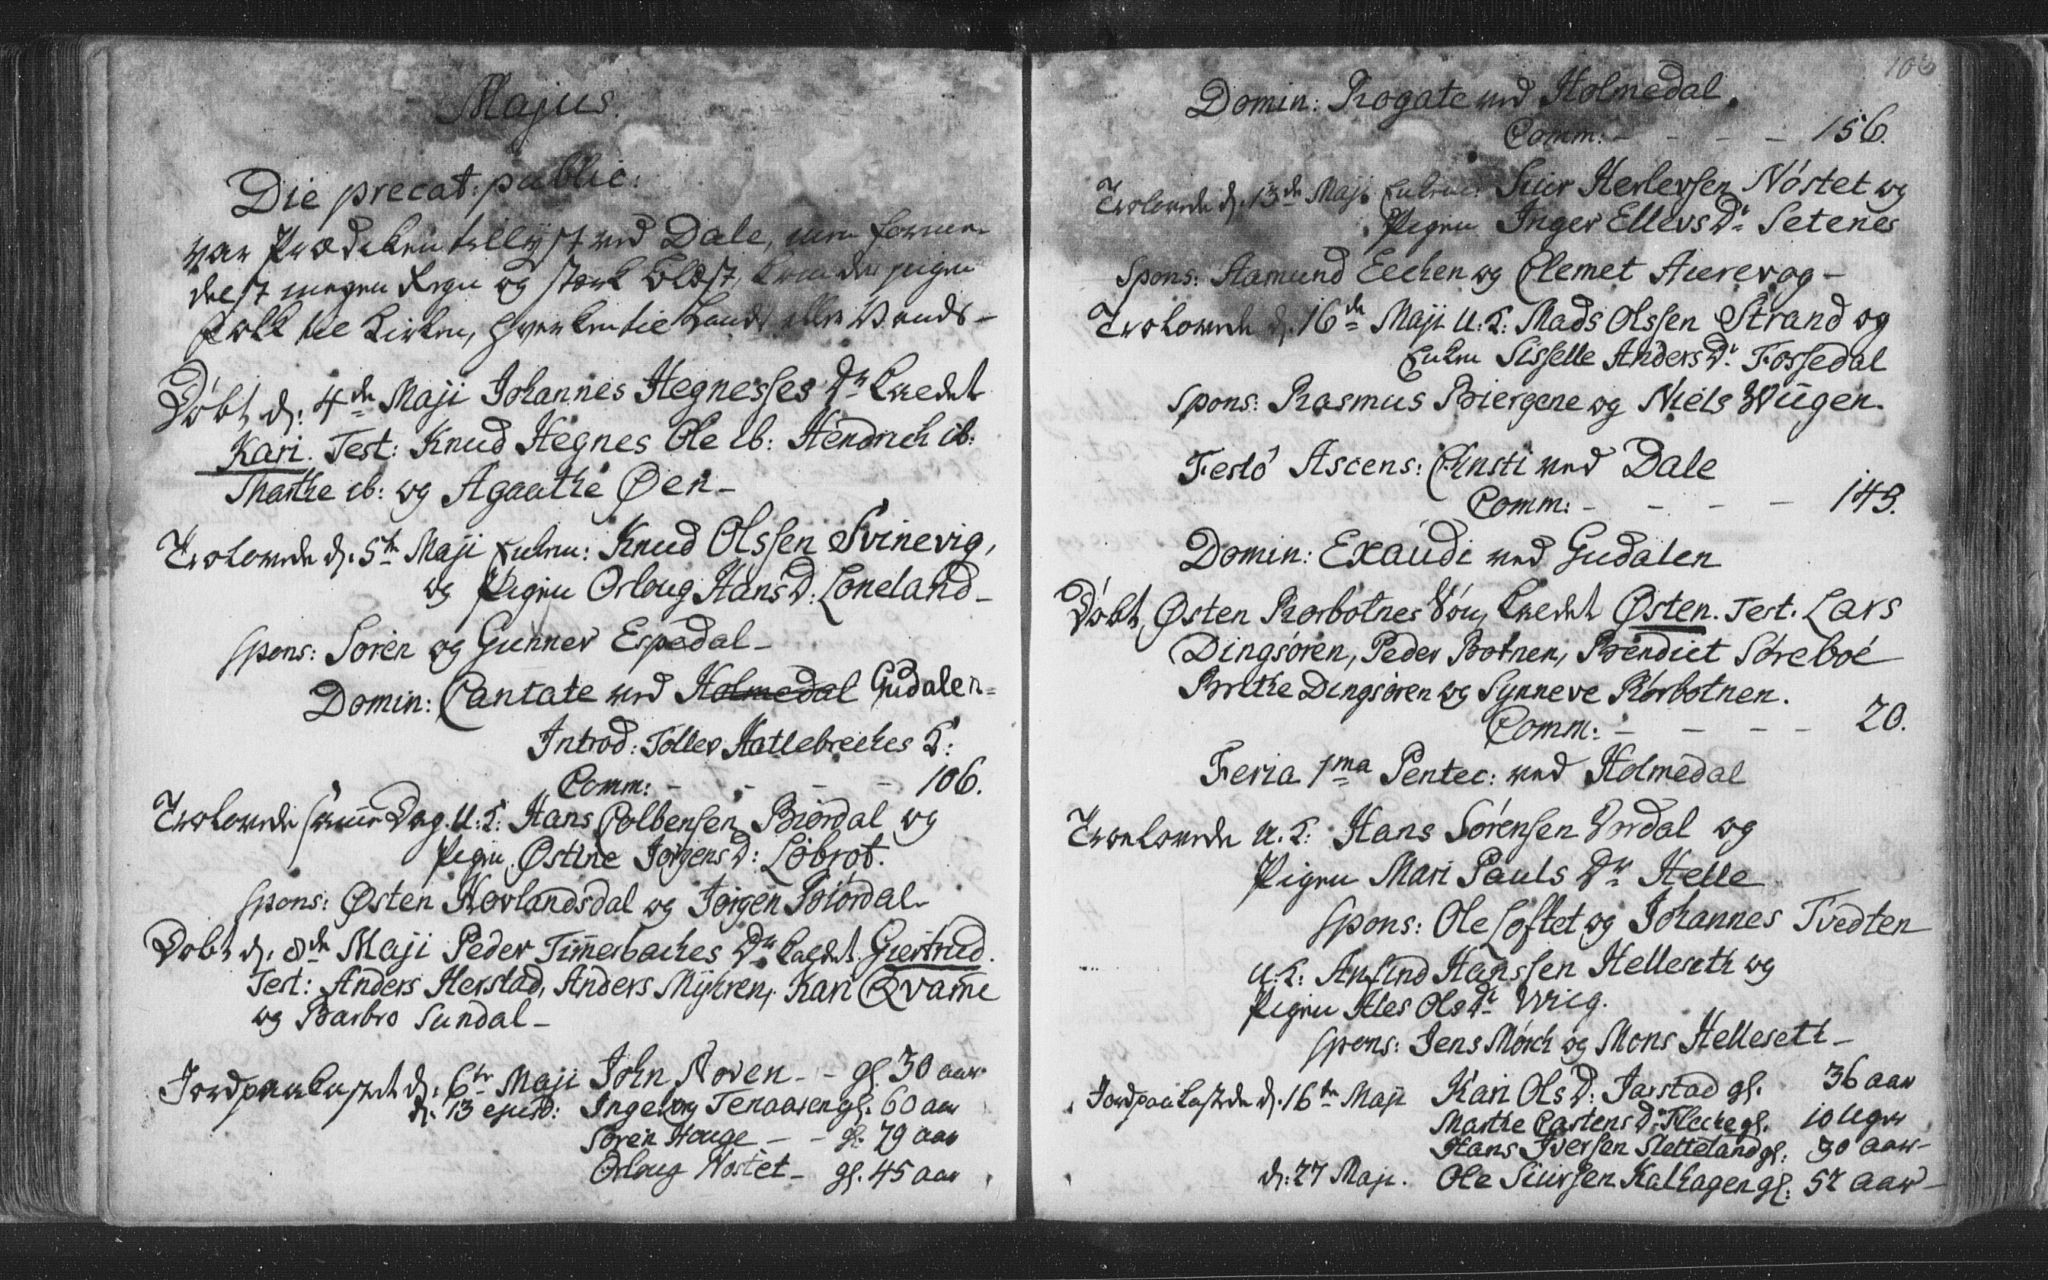 Majus.
Die precat: public:
var Prædiken tillyst ved Dale, men formedelst megen Regn og stærk blæst, kom der ingen
Folk til Kirken, hverken til Lands eller Vands-
Döbt d: 4de Maji Johannes Hegnesses Dr kaldet
Kari. Test: Knud Hegnes Ole ib: Hendrich ib:
Marthe ib: og Agaathe Øen-
Trolovede d: 5te Maji Enkem: Knud Olssen Svinevig,
og Pigen Orloug Hans D: Loneland-
Spons: Soren og Gunner Espedal-
Domin: Cantate ved Holmedal Gudalen-
Introd: Toller Hatlebreches K:
Comm: - - - - 106.
Trolovede samme Dag. U: K: Hans Colbensen Biordal og
Pigen Østine Jörgens D: Löbrot.
Spons: Østen Hovlandsdal og Jörgen Biördal-
Döbt d: 8de Maji Peder Timmerbaches Dr kaldet Giertrud.
Test: Anders Herstad, Anders Myhren, Kari Qvame
og Barbro Sundal-
Jordpaakastet d: 6te Maji John Noven - - gl. 30 aar
d: 13 ejusd: Ingeborg Tenaaren gl. 60 aar
Soren Houge - - gl. 79 aar
Orloug Nostet - gl. 45 aar
106
Domin: Rogate ved Holmedal.
Comm: - - - - 156.
Trolovede d: 13de Maji Siur Herlevsen Nöstet og
Pigen Inger Ellevs Dr Setenes
Spons: Aamund Eechen og Clemet Aurevog-
Trolovede d: 16de Maji U: K: Mads Olssen Strand og
Enken Sisselle Anders Dr Fossedal
Spons: Rasmus Biergene og Niels Wügen.
Festo Ascens: Christi ved Dale
Comm: - - - - 143.
Domin: Exaudi ved Gudalen
Döbt, Østen Rorbotnes Sön, kaldet Østen. Test: Lars
Dingsören, Peder Botnen, Bendict Söreboe
Brithe Dingsören og Synneve Rörbotnen.
Comm: - - - - 20.
Feria 1ma Pentec: ved Holmedal
Troelovede U. K: Hans Sörensen Vordal og
Pigen Mari Pauls Dr Helle
Spons: Ole Loftet og Johannes Tvedten
U: K: Anfind Hanssen Helleseth og
Pigen Ales Ols Dr Wiig.
Spons: Jens Mörch og Mons Hellesett-
Jordpaakastede d: 16te Maji Kari Ols D: Jarstad gl. 36 aar
Marthe Carstens Dr Fleche gl. 10 Uger
Hans Iversen Sletteland gl: 30 aar-
d: 27 Maji. Ole Siursen Kalhagen gl: 52 aar-